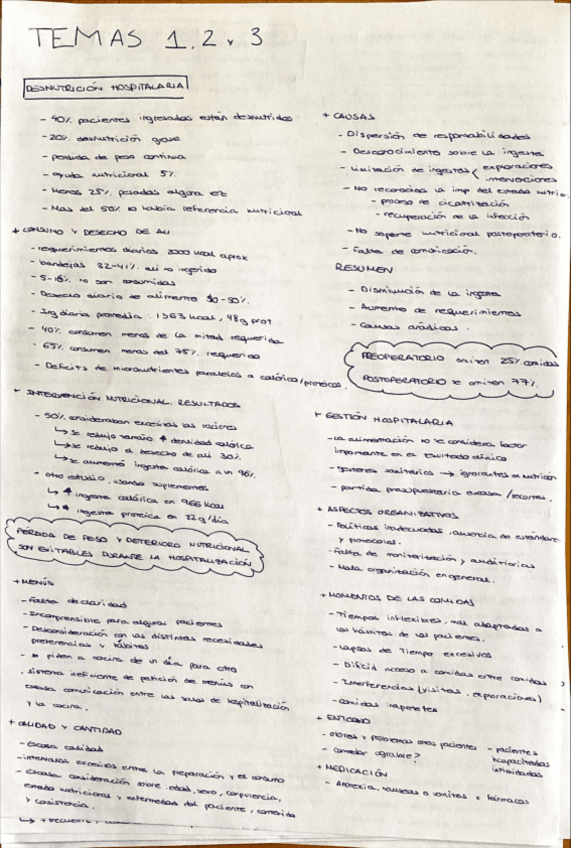 TEMAS 1, 2 y 3
DESNUTRICIÓN HOSPITALARIA
- 40% pacientes ingresados están desnutridos
- 20% desnutrición grave
- perdida de peso continua
- ayuda nutricional 5%
- Menos 25% pesados alguna vez
- Mas del 50% no había referencia nutricional
+ CONSUMO Y DESECHO DE ALI
- requerimientos diarios 2000 kcal aprox
- bandejas 32-41% ali no ingerido
- no son consumidas
- Desecho diario de alimento
- Ing diaria promedio: 1563 kcal, 48g prot
- 40% consumen menos de la mitad requerida
- 65% consumen menos del 75% requerido
- Deficits de micronutrientes paralelos a calórico/proteicos.
+ INTERVENCIÓN NUTRICIONAL. RESULTADOS
- 50% consideraban excesivas las raciones
↳ se redujo tamaño ↑ densidad calórica
↳ se redujo el desecho de ali 30%
↳ se aumentó ingesta calórica a un 96%
* otro estudio, usando suplementos
↳ ↑ ingesta calórica en 966 kcal
↳ ↑ ingesta proteica en 22g/dia
PÉRDIDA DE PESO Y DETERIORO NUTRICIONAL
SON EVITABLES DURANTE LA HOSPITALIZACIÓN
+ MENÚS
- Falta de claridad
- Incomprensible para algunos pacientes
- Desconsideración con las distintas necesidades
preferencias y hábitos
- se piden a cocina de un día para otro
- sistema ineficiente de petición de menús con
escasa comunicación entre las salas de hospitalización
y la cocina.
+ CALIDAD Y CANTIDAD
- Escasa calidad
- intervalos excesivos entre la preparación y el consumo
- Escasa consideración sobre: edad, sexo, corpulencia,
estado nutricional y enfermedad del paciente, contenido
y consistencia.
+ CAUSAS
- Dispersión de responsabilidades
- Desconocimiento sobre la ingesta
- Limitación de ingestas < exploraciones
intervenciones
- No reconocida la imp del estado nutrio.
- proceso de cicatrización
- recuperación de la infección
- No soporte nutricional postoperatorio.
- Falta de comunicación.
RESUMEN
- Disminución de la ingesta
- Aumento de requerimientos
- Causas
PREOPERATORIO omiten 25% comidas
POSTOPERATORIO se omiten 77%
+ GESTIÓN HOSPITALARIA
- La alimentación no se considera factor
importante en el resultado clínico
- gestores sanitarios → ignorantes en nutrición
- partida presupuestaria escasa/recortes.
+ ASPECTOS ORGANIZATIVOS
- Políticas inadecuadas, ausencia de estándares
y protocolos.
- Falta de monitorización y auditorías
- Mala organización en general.
+ MOMENTOS DE LAS COMIDAS
- Tiempos inflexibles, mal adaptados a
los hábitos de los pacientes.
- Lapsos de tiempo excesivos
- Difícil acceso a comidas entre comidas
- Interferencias (visitas, exploraciones)
- comidas inapetentes
+ ENTORNO
- olores y problemas otros pacientes - pacientes
incapacitados
intimidados
- comedor agradable?
+ MEDICACIÓN
- Anorexia, náuseas o vómitos x fármacos